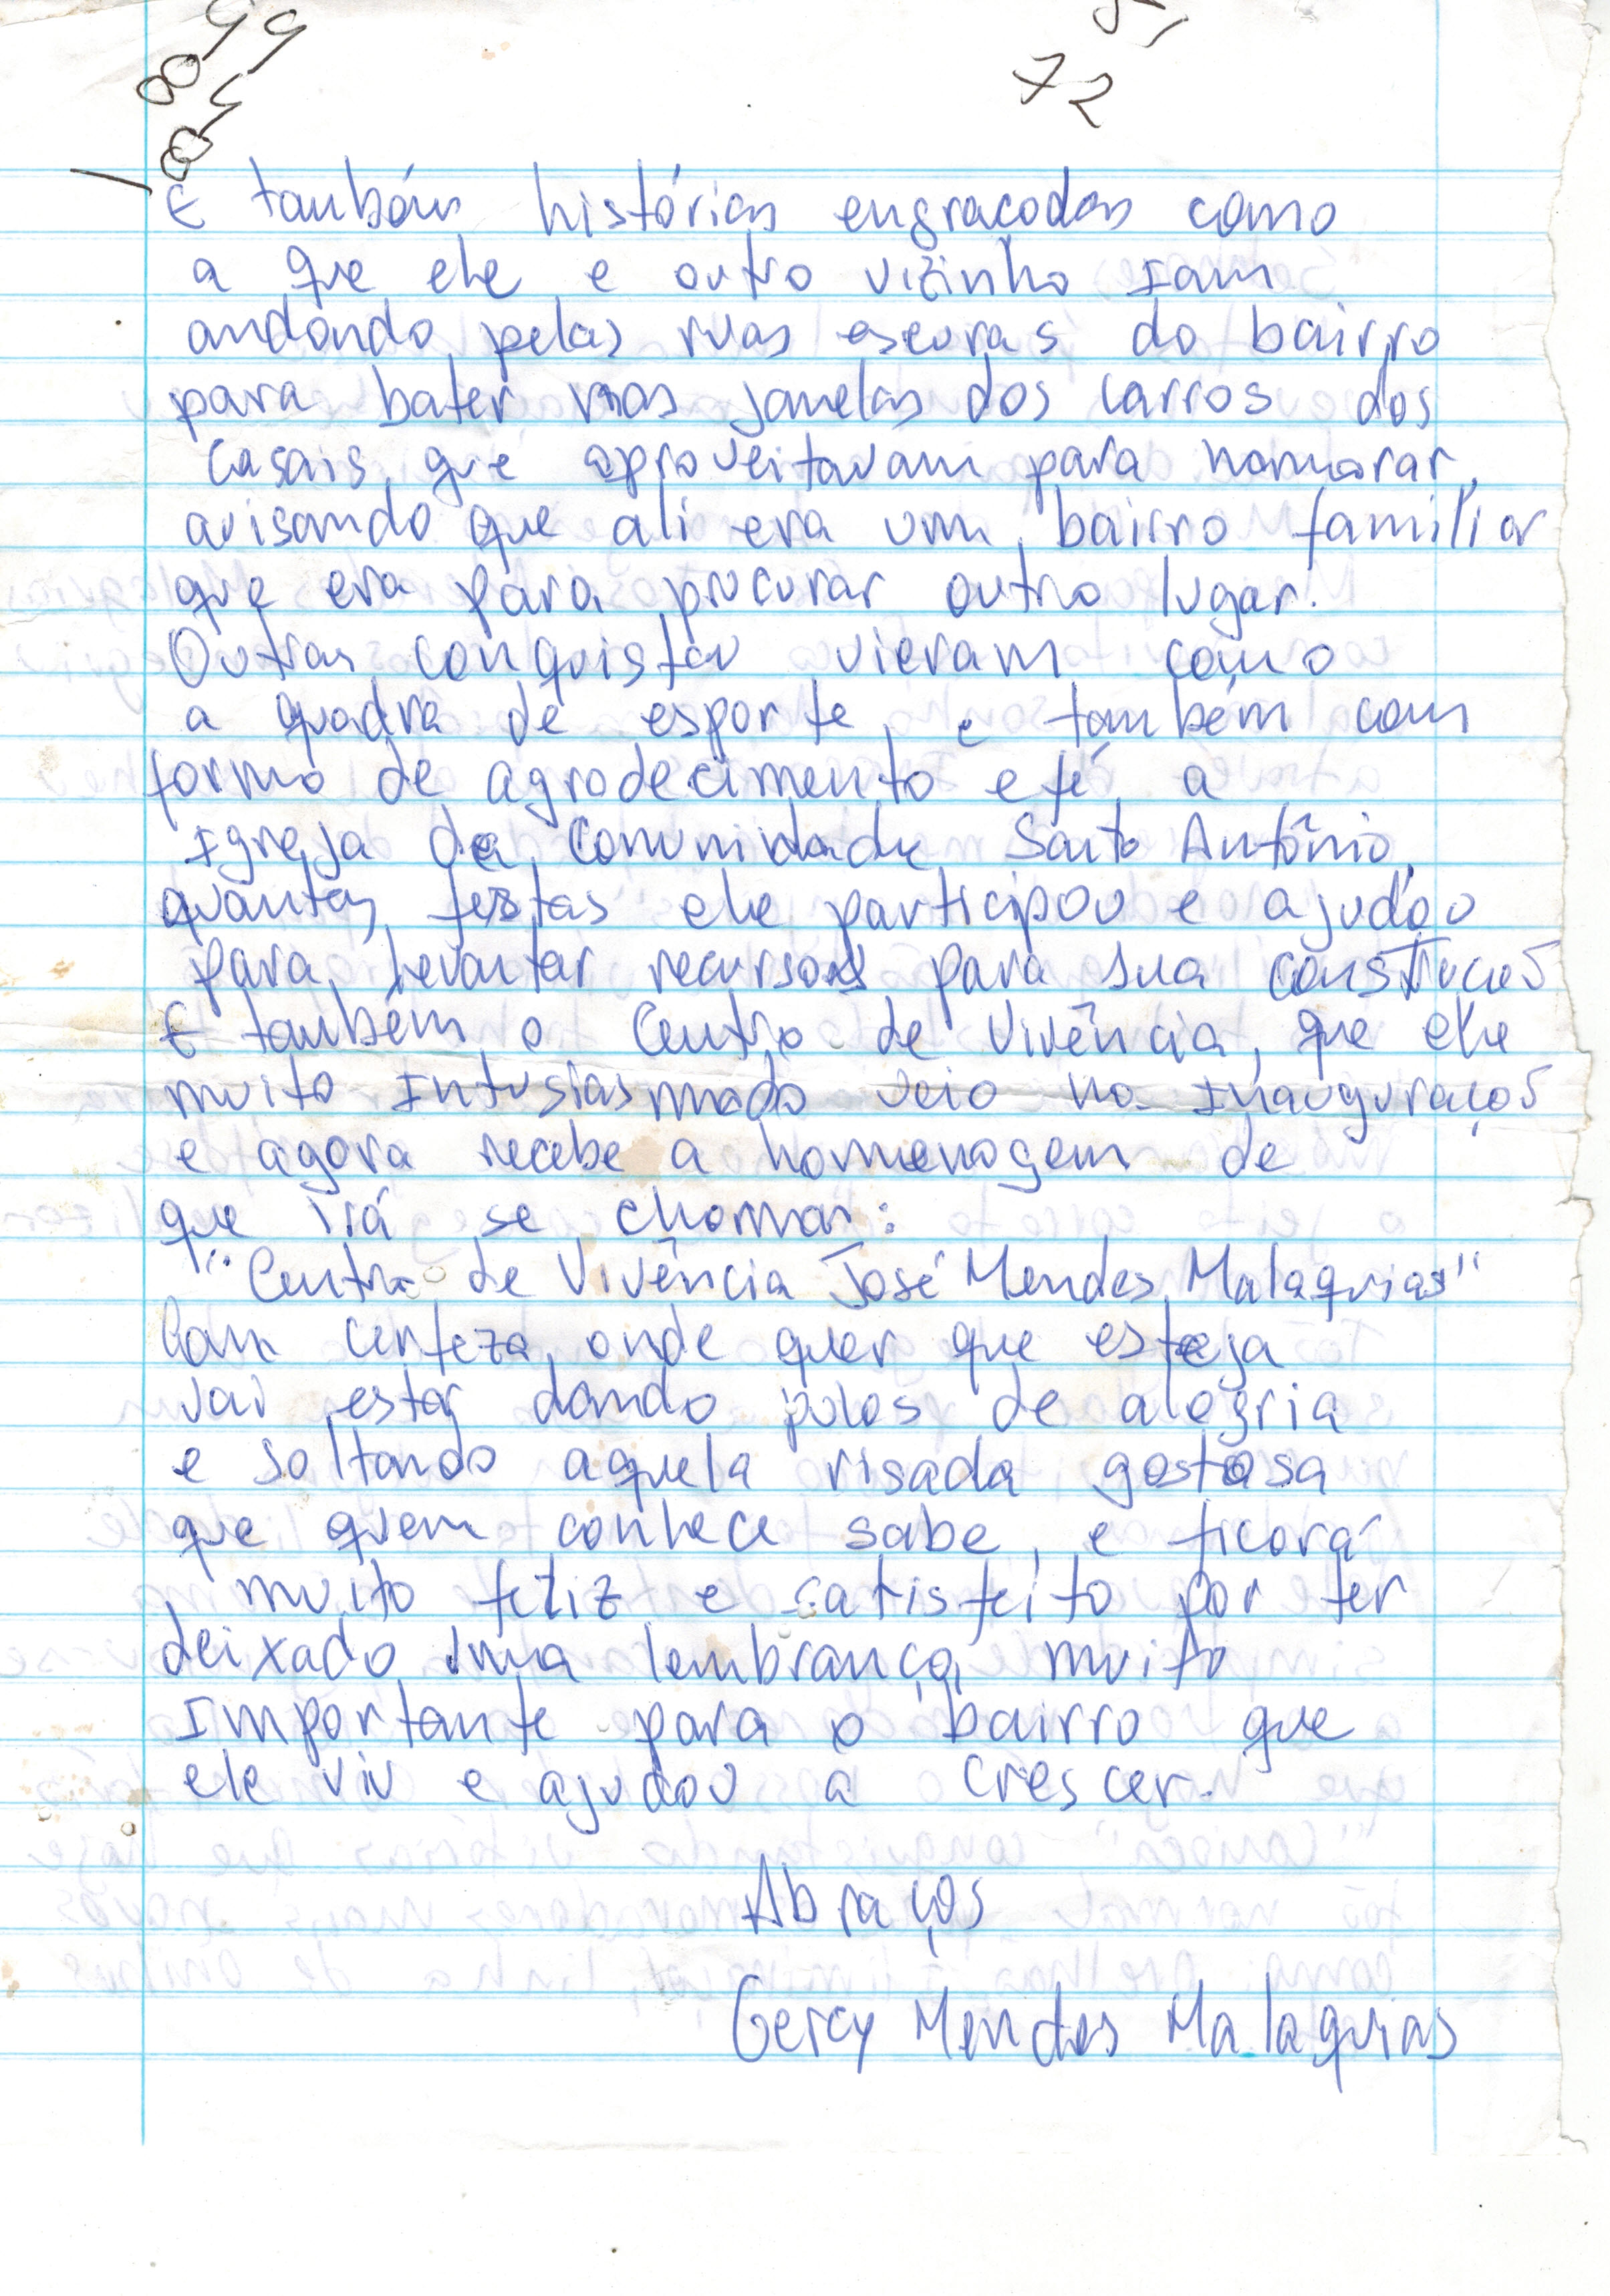 72
E também histórias engraçadas como
a que ele e outro vizinho iam
andando pelas ruas escuras do bairro
para bater nas janelas dos carros dos
casais que aproveitavam para namorar,
avisando que ali era um bairro familiar
que era para procurar outro lugar.
Outras conquistas vieram como
a quadra de esporte, e também com
forma de agradecimento e fé, a
Igreja da Comunidade Santo Antônio,
quantas festas ele participou e ajudou
para levantar recursos para sua
E também o Centro de Vivência, que ele
muito intusiasmado veio na inauguração
e agora recebe a homenagem de
que irá se chamar:
"Centro de Vivência José Mendes Malaquias"
Com certeza, onde quer que esteja
vai estar dando pulos de alegria
e soltando aquela risada gostosa
que quem conhece sabe, e ficará
muito feliz e satisfeito por ter
deixado uma lembrança muito
importante para o bairro que
ele viu e ajudou a crescer.
Abraços
Gercy Mendes Malaquias